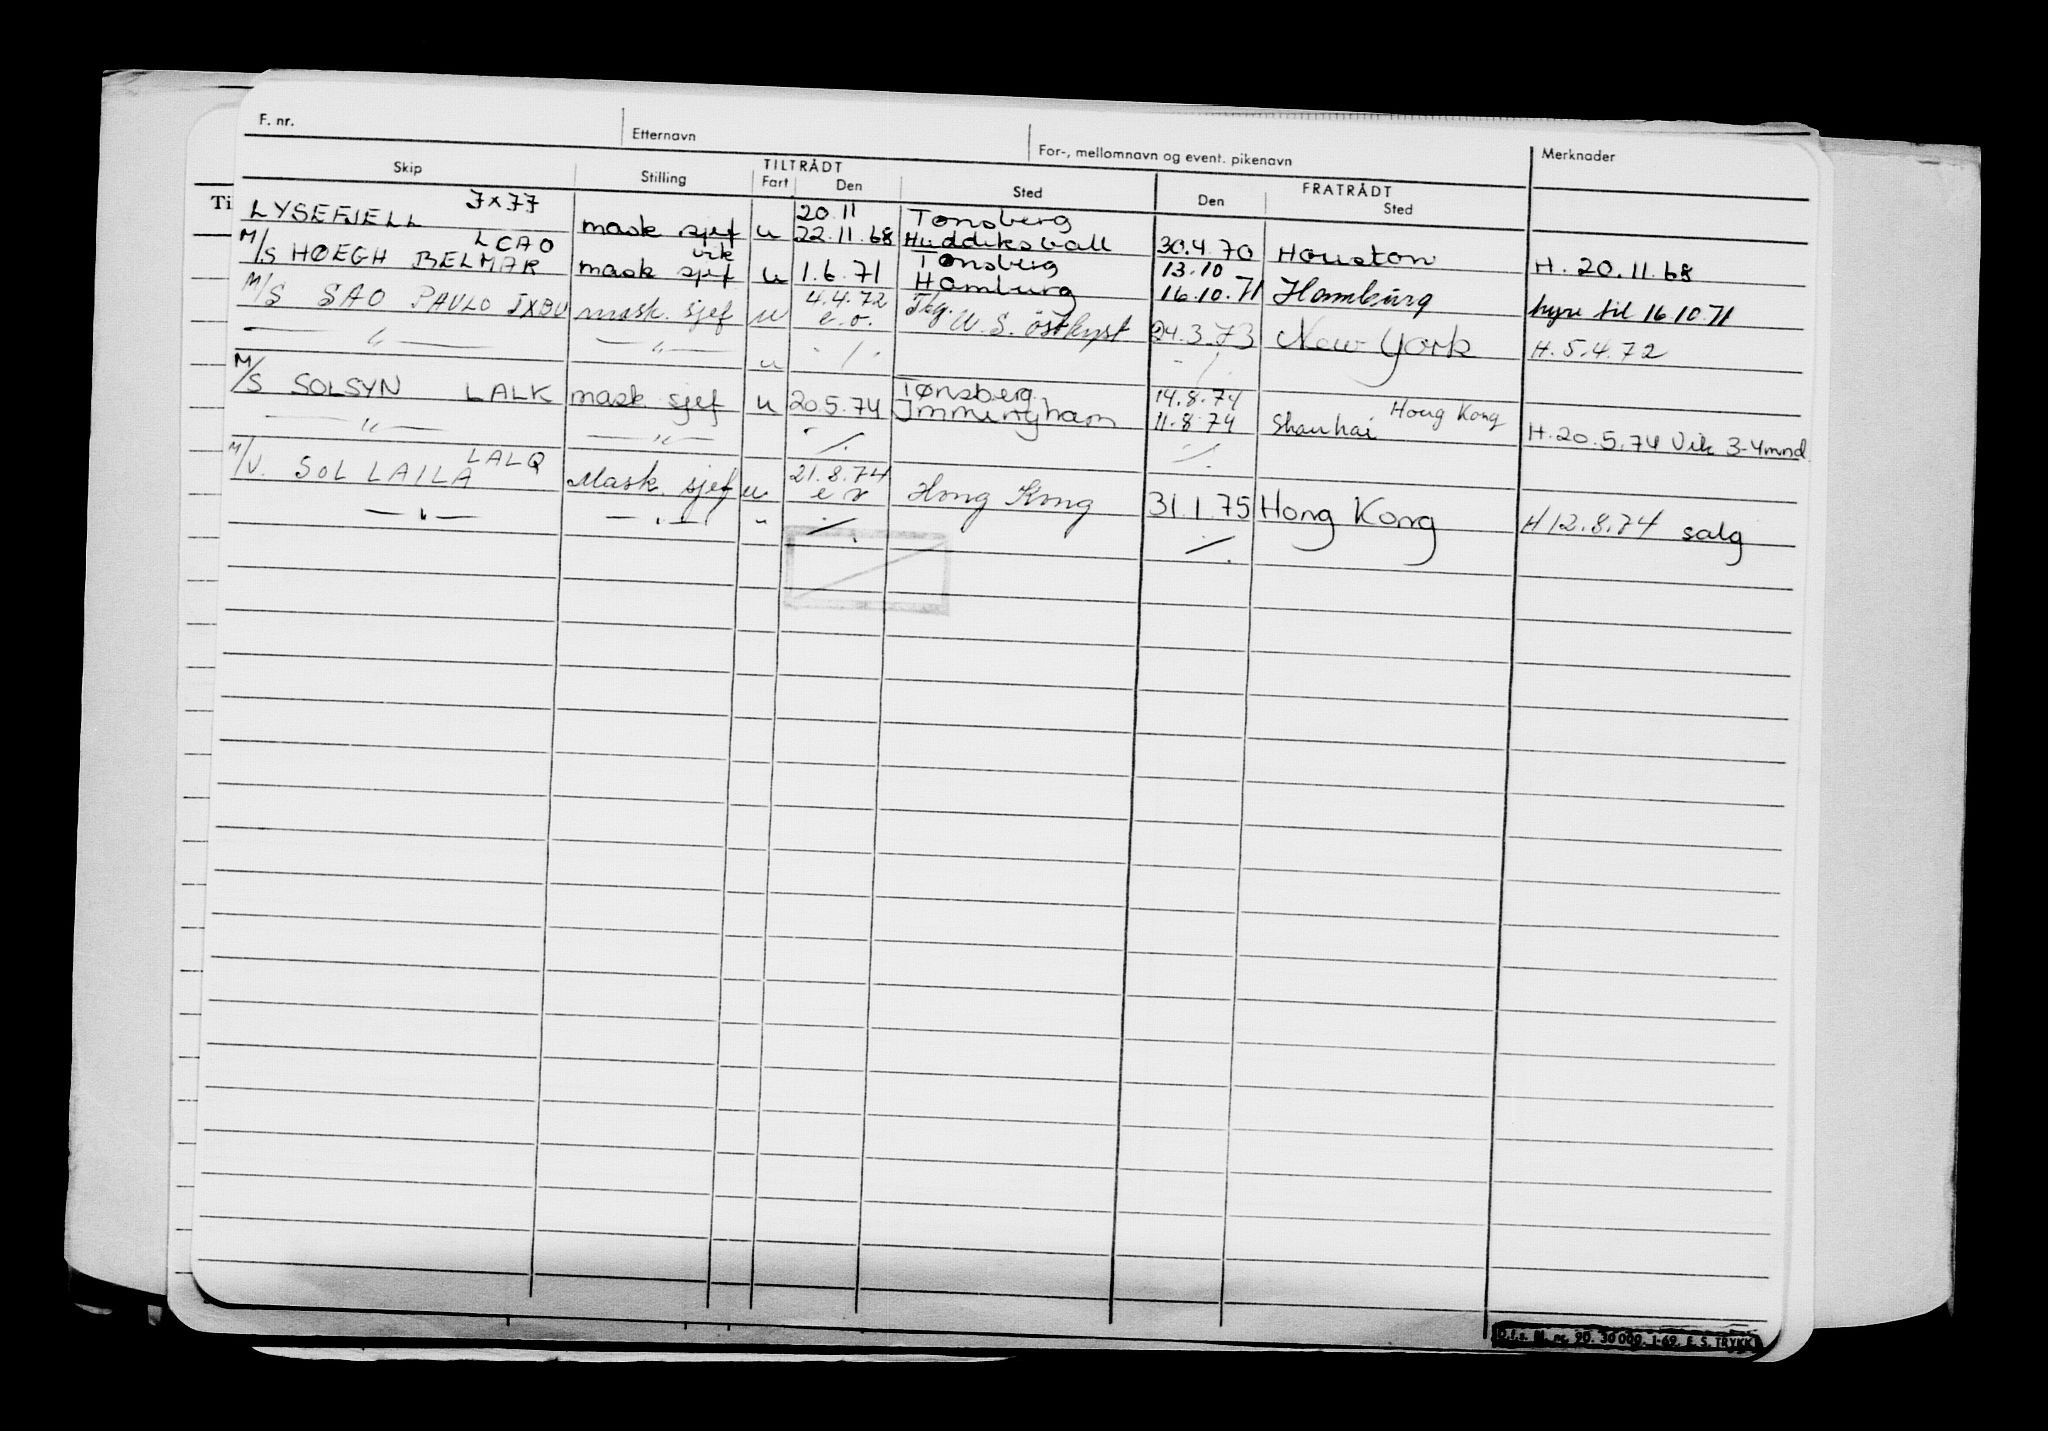 F. nr.
Etternavn
For-, mellomnavn og event. pikenavn
Merknader
Skip
Stilling
TILTRÅDT
Fart
Den
Sted
FRATRÅDT
Den
Sted
Ti
LYSEFJELL JXJJ mask sjef u 20.11 22.11.68 Tønsberg Huddiksvall 30.4.70 Houston H. 20.11.68
M/S HØEGH BELMAR LCAO mask sjef vik u 1.6.71 Tønsberg Hamburg 13.10 16.10.71 Hamburg hyre til 16.10.71
M/S SAO PAULO JXBU mask. sjef u 4.4.72 e.o. Tbg. U.S. østkyst 24.3.73 New York H. 5.4.72
— " — — " — u ·/· ·/·
M/S SOLSYN LALK mask sjef u 20.5.74 Tønsberg Immingham 14.8.74 11.8.74 Shanhai Hong Kong H. 20.5.74 Vik 3-4mnd.
— " — — " — ·/. ·/.
M/V. SOL LAILA LALQ Mask. sjef u 21.8.74 Hong Kong 31.1.75 Hong Kong H 12.8.74 salg
— " — — " — " ·/. ·/.
D.f.s. Bl. nr. 90. 30 000. 1-69. E. S. TRYKK